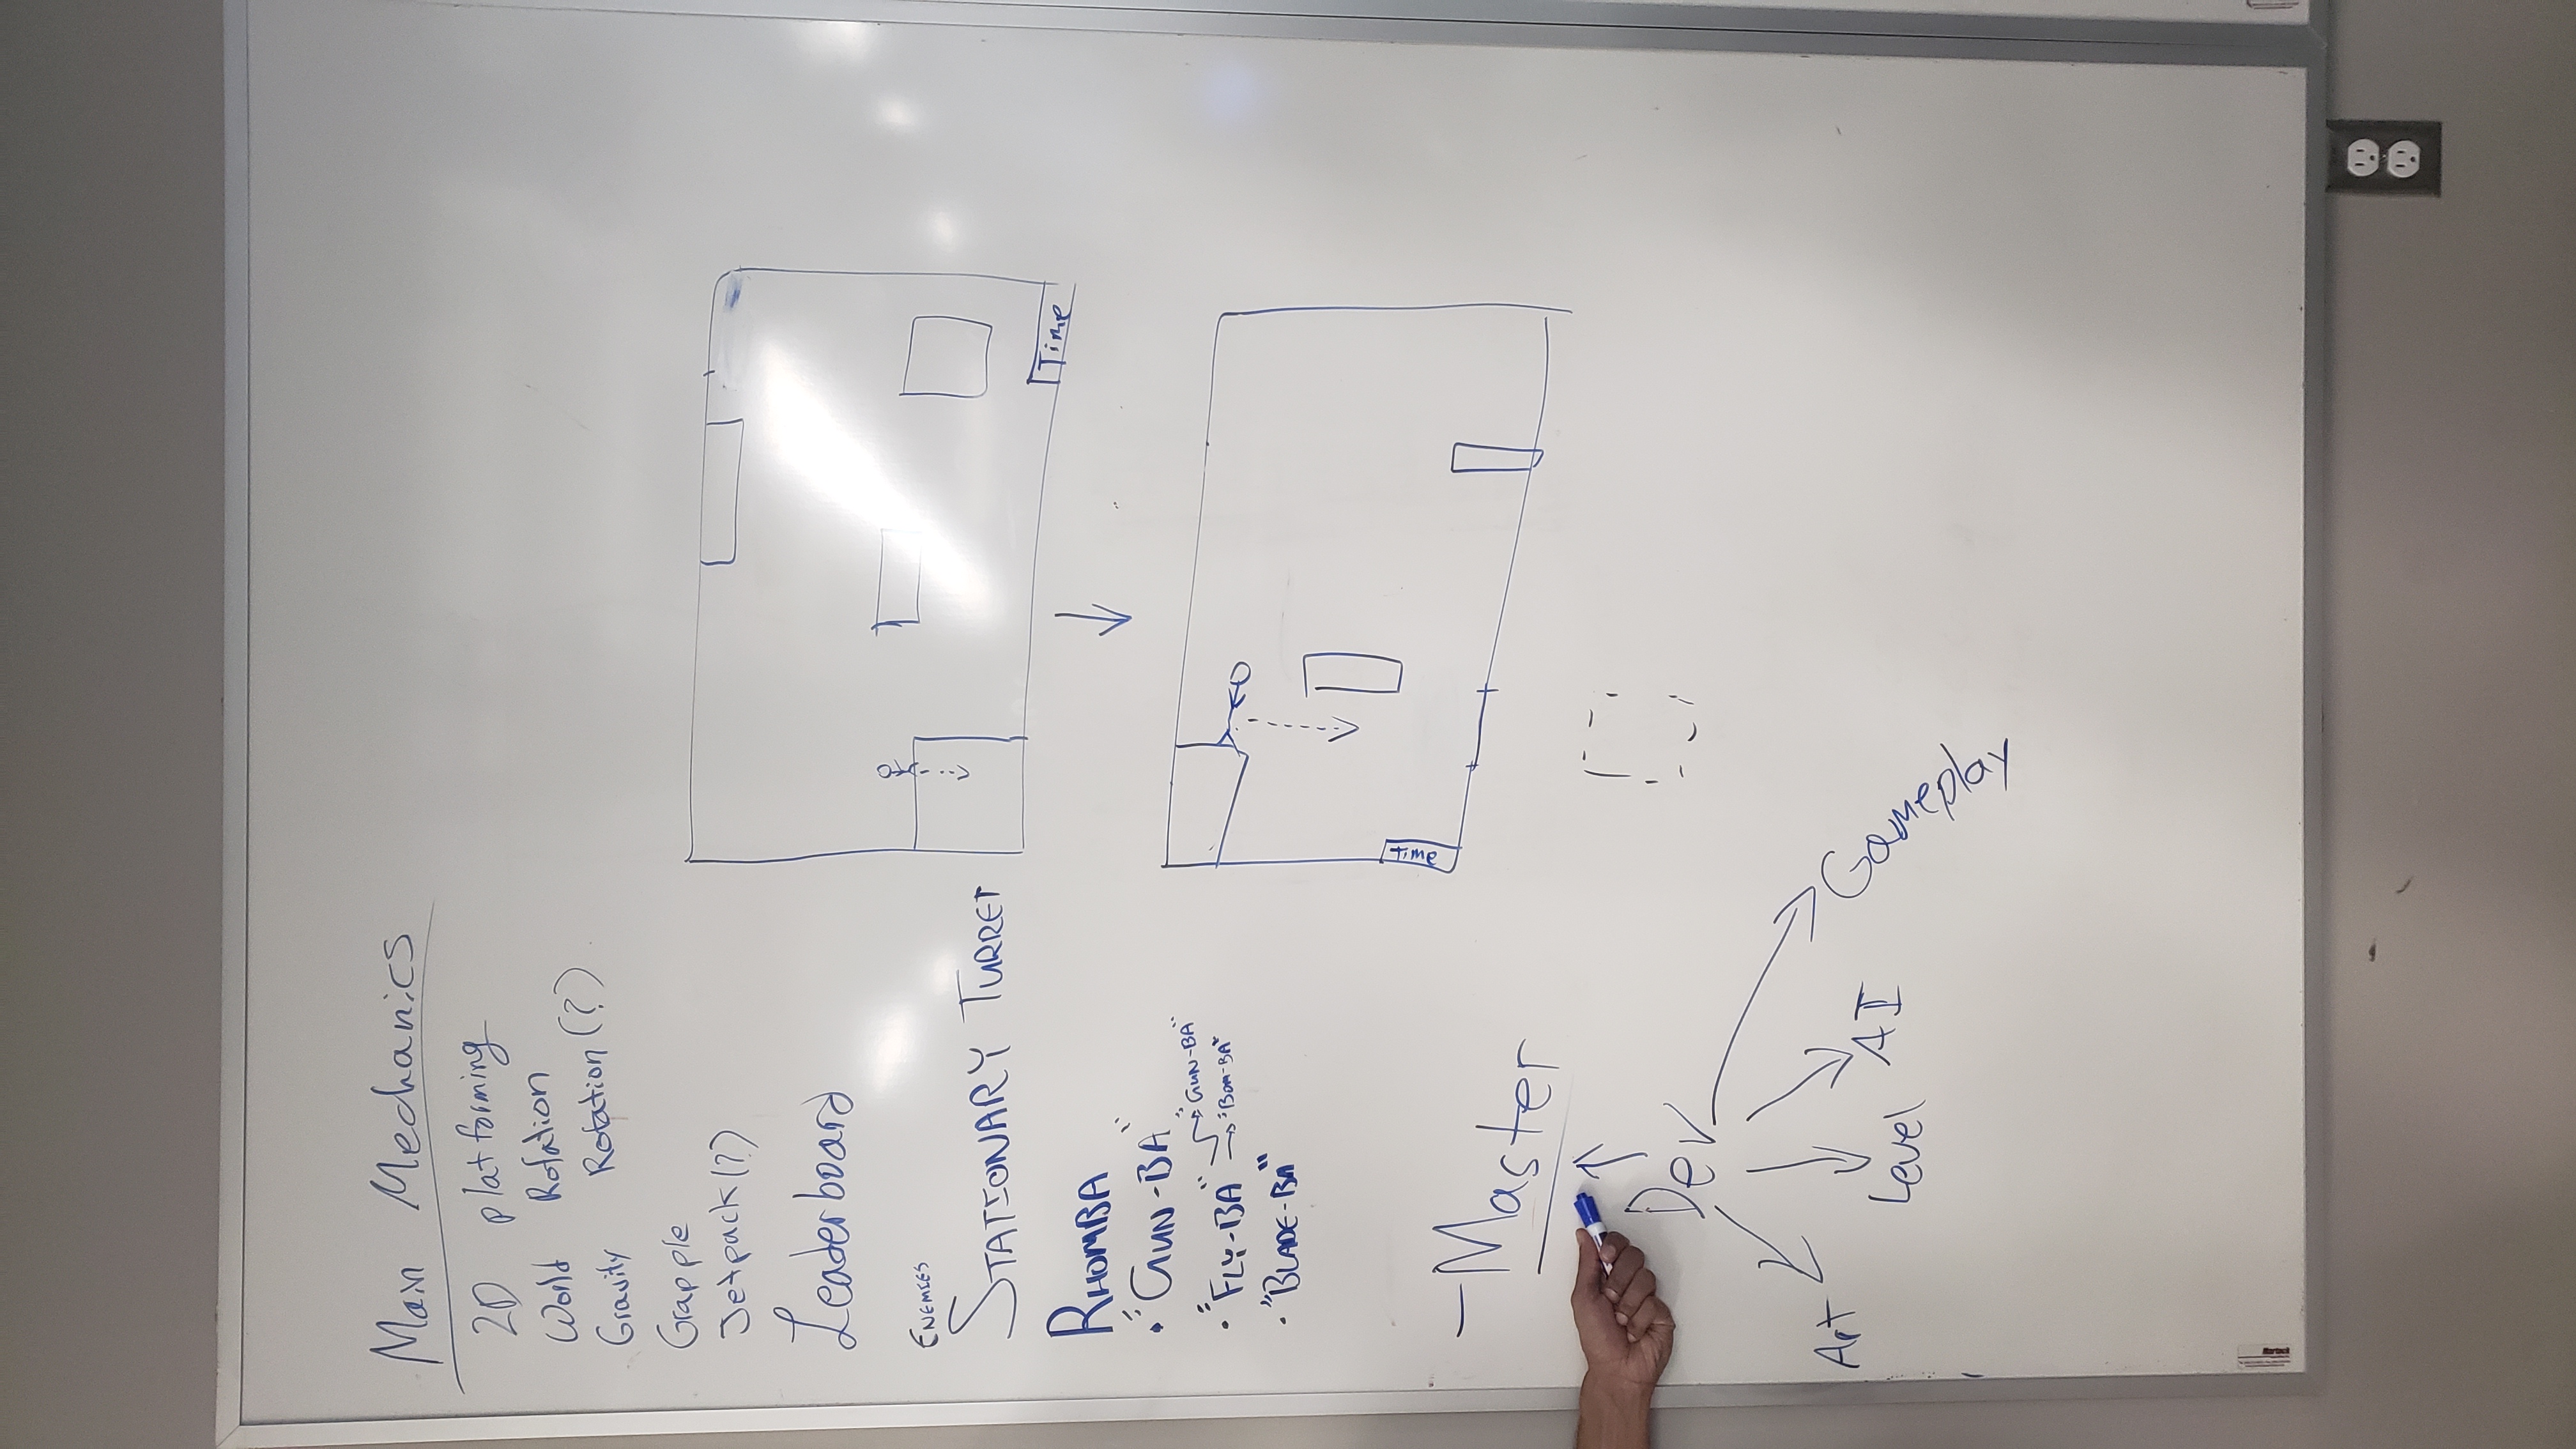 Main Mechanics
2D platforming
World Rotation
Gravity Rotation (?)
Grapple
Jetpack (?)
Leaderboard
ENEMIES
STATIONARY TURRET
RHOMBA
• "GUN-BA"
• "FLY-BA" → "GUN-BA"
→ "BOM-BA"
• "BLADE-BA"
Time
Time
- Master
Dev
Art
Level
AI
Gameplay